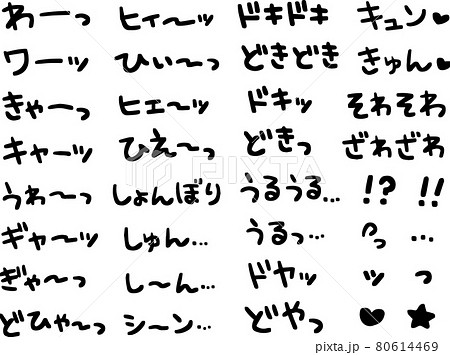 わーっ ヒィ〜ッ ドキドキ キュン♥
ワーッ ひぃ〜っ どきどき きゅん♥
きゃーっ ヒェ〜ッ ドキッ そわそわ
キャーッ ひえ〜っ どきっ ざわざわ
うわ〜っ しょんぼり うるうる… !? !!
ギャ〜ッ しゅん… うるっ… …
ぎゃ〜っ し〜ん… ドヤッ ッ っ
どひゃ〜っ シーン… どやっ ♥ ★
PIXTA
pixta.jp - 80614469